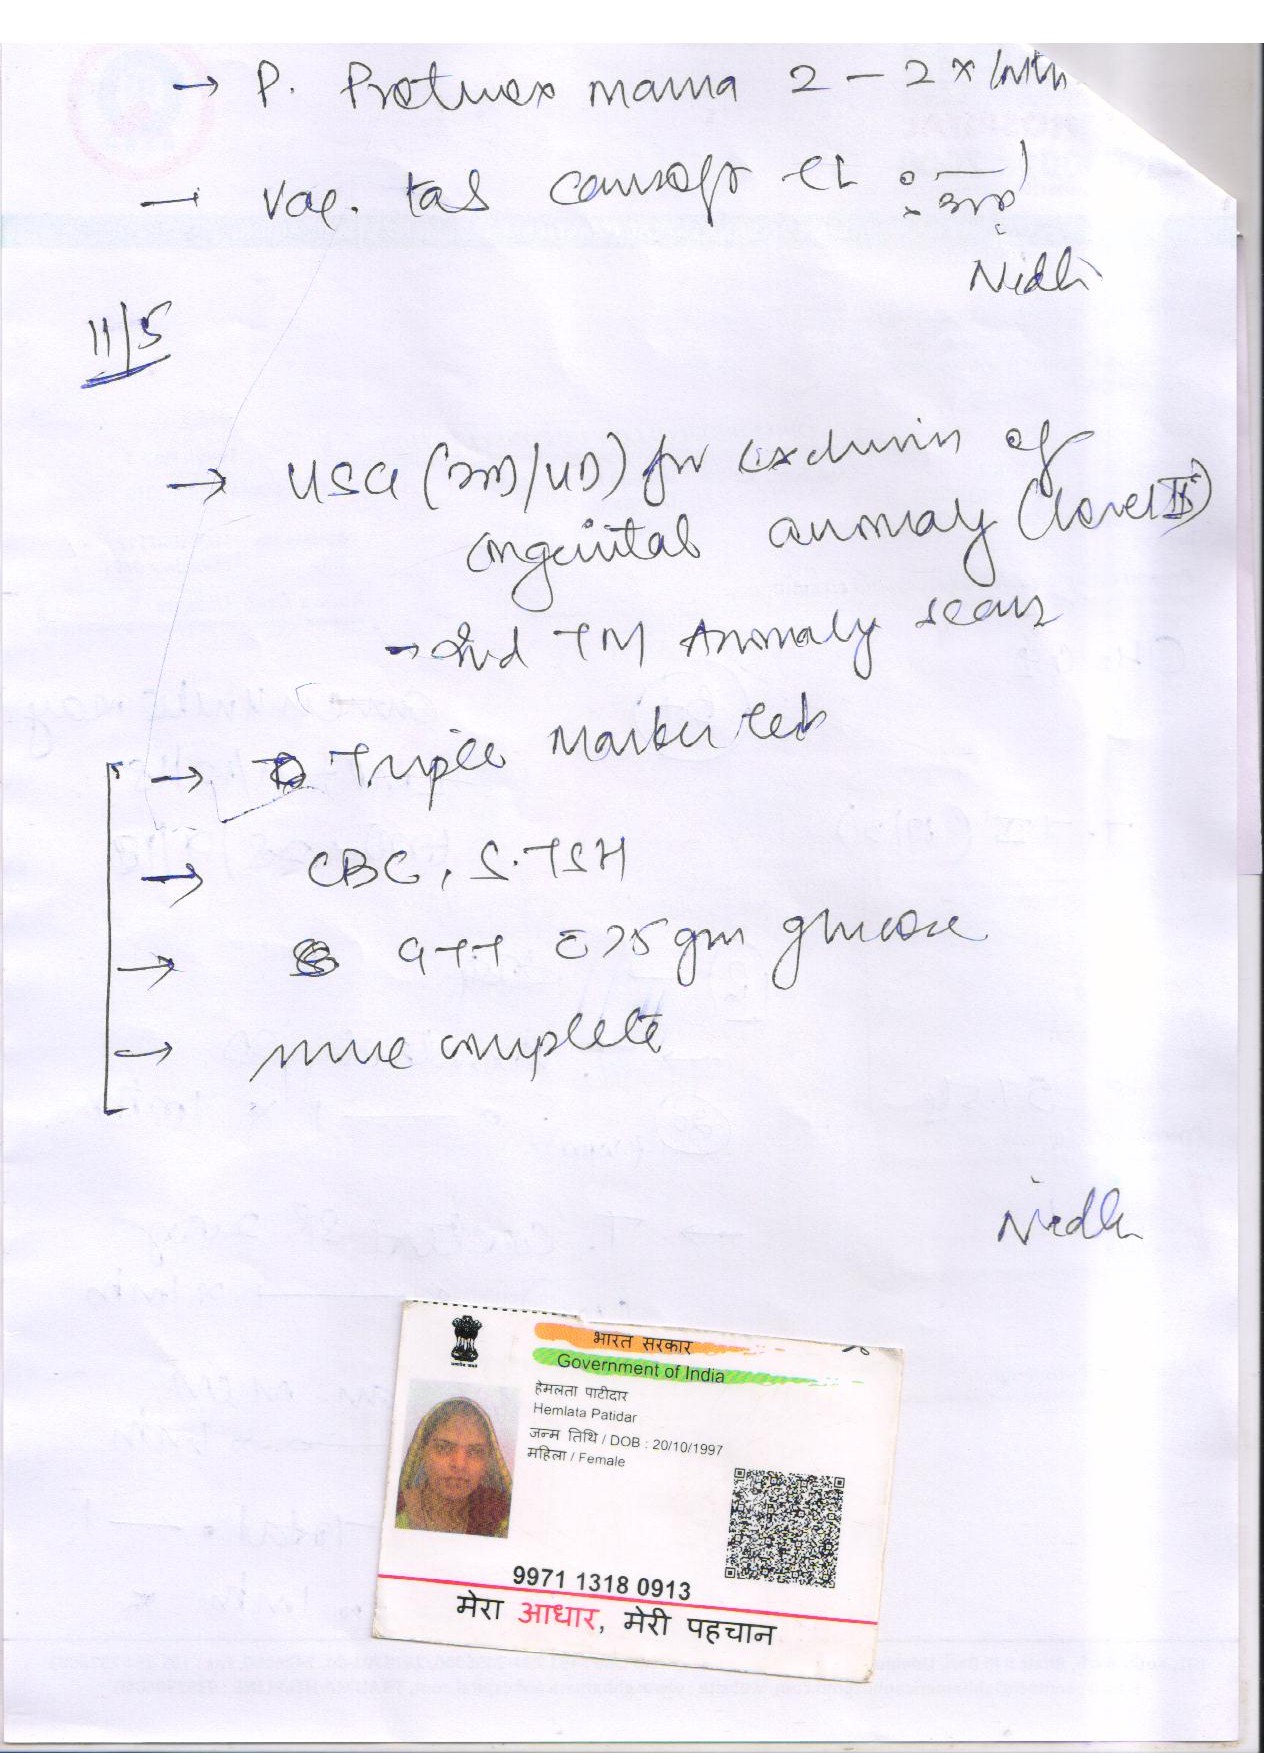 → P. Protinex mama 2 – 2 x
→ Vag. tab
Nidhi
11/5
→ USG (3D/4D) for exclusion of
congenital anomaly (Level II)
→ IInd TM Anomaly scan
→ Triple Marker test
→ CBC, S.TSH
→ GTT c̄ 75 gm glucose
→ urine complete
Nidhi
भारत सरकार
Government of India
हेमलता पाटीदार
Hemlata Patidar
जन्म तिथि / DOB : 20/10/1997
महिला / Female
9971 1318 0913
मेरा आधार, मेरी पहचान